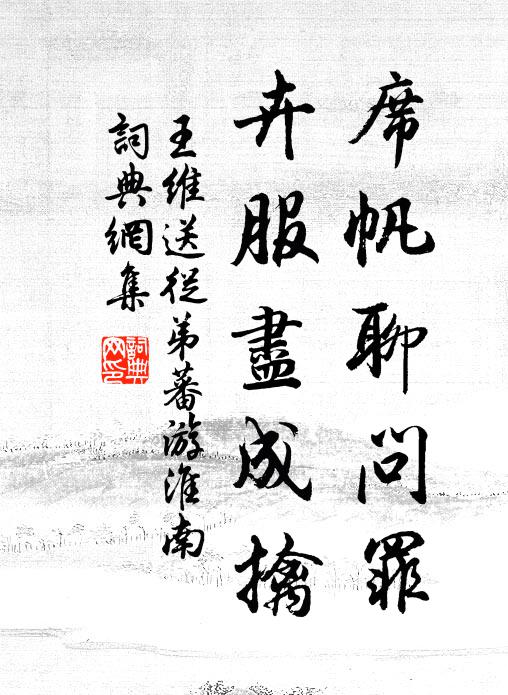 席帆聊問罪
卉服盡成擒
王維送從弟蕃游淮南
詞典網集
詞典
网印